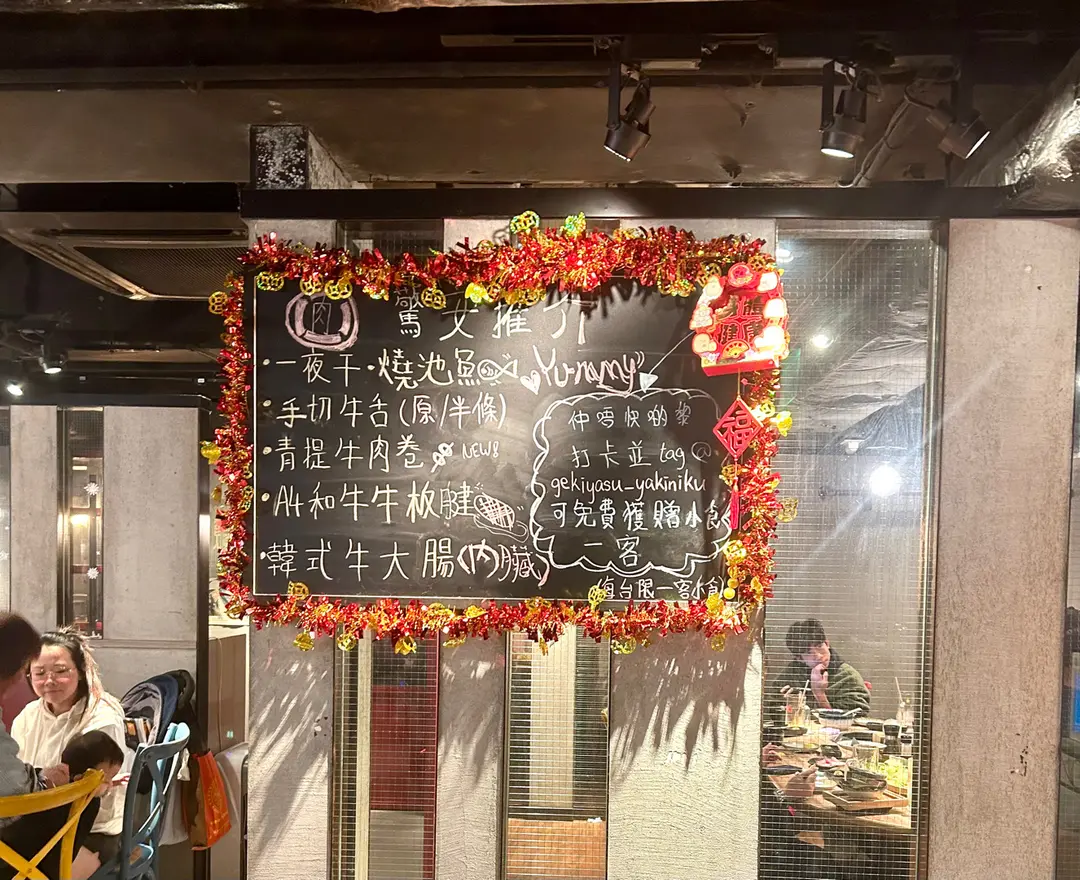 肉 驚安推介
・一夜干・燒池魚 Yummy"
・手切牛舌(原/半條)
・青提牛肉卷 NEW!
・A4和牛牛板腱
・韓式牛大腸(內臟)
仲唔快啲黎
打卡並tag@
gekiyasu_yakiniku
可免費獲贈小食
一客
(每台限一客小食)
健康
福